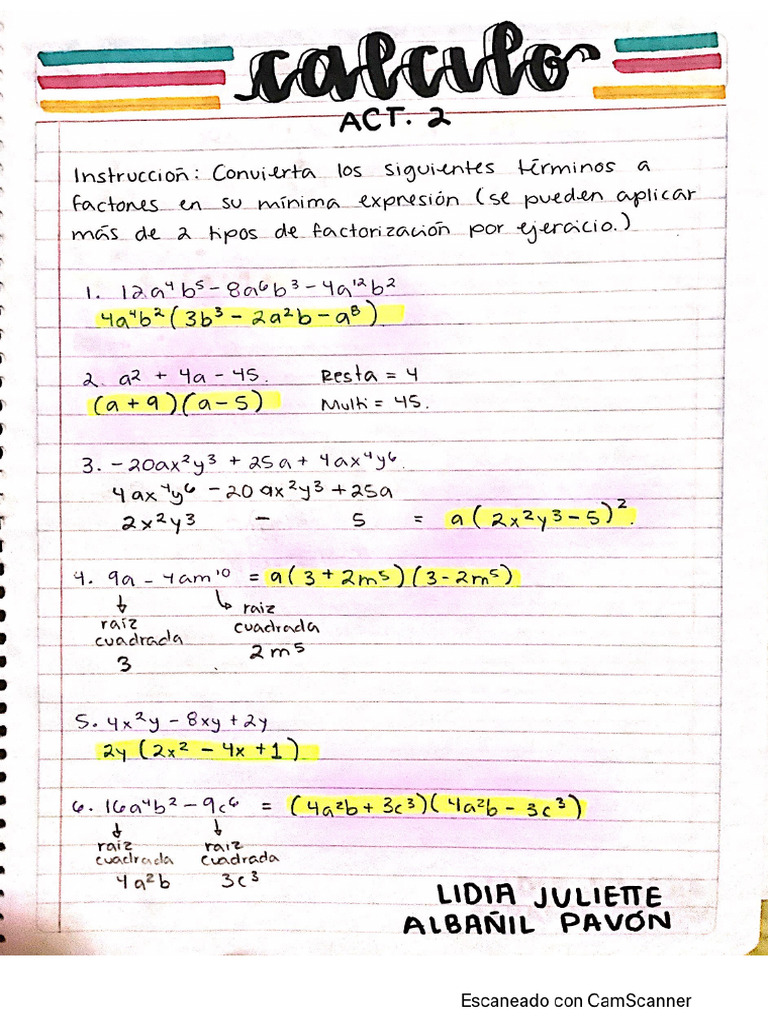 calculo
ACT. 2
Instrucción: Convierta los siguientes términos a
factores en su mínima expresión (se pueden aplicar
más de 2 tipos de factorización por ejercicio.)
1. 12a⁴b⁵ - 8a⁶b³ - 4a¹²b²
4a⁴b² (3b³ - 2a²b - a⁸)
2. a² + 4a - 45. Resta = 4
(a + 9)(a - 5) Multi = 45.
3. -20ax²y³ + 25a + 4ax⁴y⁶.
4ax⁴y⁶ - 20ax²y³ + 25a
2x²y³ - 5 = a(2x²y³ - 5)².
4. 9a - 4am¹⁰ = a(3 + 2m⁵)(3 - 2m⁵)
↓ ↳ raiz
raíz cuadrada
cuadrada 2m⁵
3
5. 4x²y - 8xy + 2y
2y (2x² - 4x + 1)
6. 16a⁴b² - 9c⁶ = (4a²b + 3c³)(4a²b - 3c³)
↓ ↓
raiz raiz
cuadrada cuadrada
4a²b 3c³
LIDIA JULIETTE
ALBAÑIL PAVÓN
Escaneado con CamScanner